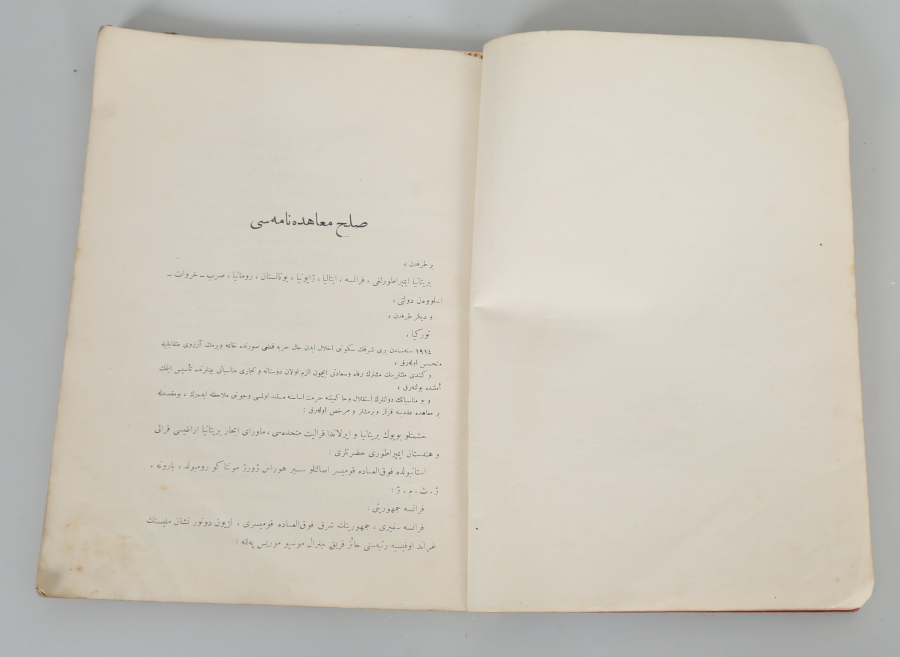 صلح معاهده‌نامه‌سی
بر طرفدن ،
بریتانیا ایمپراطورلغی ، فرانسه ، ایتالیا ، ژاپونیا ، یونانستان ، رومانیا ، صرب ـ خروات ـ
اسلوون دولتی ،
و دیگر طرفدن ،
تورکیا ،
١٩١٤ سنه‌سندن بری شرقك سکونی اخلال ایدن حال حربه قطعی صورتده خاتمه ویرمك آرزوی متقابلیله
متحسس اوله‌رق ،
و کندی ملتلرینك مشترك رفاه و سعادتی ایچون الزم اولان دوستانه و تجاری مناسباتی بینلرنده تأسیس ایتمك
املنده بولنه‌رق ،
و بو مناسباتك دولتلرك استقلال و حاکمیتنه حرمت اساسنه مستند اولمسی وجوبنی ملاحظه ایده‌رك ، بومقصدله
بر معاهده عقدینه قرار ویرمشلر و مرخص اوله‌رق :
حشمتلو بویوك بریتانیا و ایرلاندا قرالیت متحده‌سی ، ماورای ابحار بریتانیا اراضیسی قرالی
و هندستان ایمپراطوری حضرتلری :
استانبولده فوق‌العاده قومیسر اصالتلو سیر هوراس ژورژ مونتاکو رومبولد ، بارونه ،
ژ . ث . م . ژ :
فرانسه جمهوریتی :
فرانسه سفیری ، جمهوریتك شرق فوق‌العاده قومیسری ، لژیون دونور نشان ملیسنك
غراند اوفیسیه رتبه‌سنی حائز فریق جنرال موسیو موریس په‌لله :